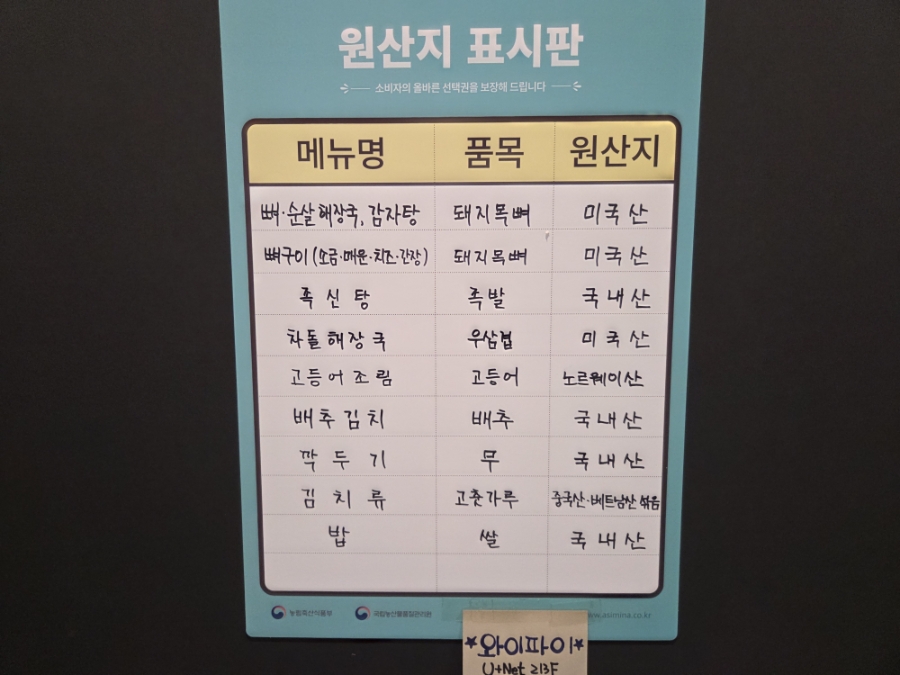 원산지 표시판
소비자의 올바른 선택권을 보장해 드립니다
메뉴명 품목 원산지
뼈·순살해장국, 감자탕 돼지목뼈 미국산
뼈구이 (소금·매운·치즈·간장) 돼지목뼈 미국산
족신탕 족발 국내산
차돌해장국 우삼겹 미국산
고등어조림 고등어 노르웨이산
배추김치 배추 국내산
깍두기 무 국내산
김치류 고춧가루 중국산·베트남산 섞음
밥 쌀 국내산
농림축산식품부 국립농산물품질관리원
*와이파이*
U+Net 213F